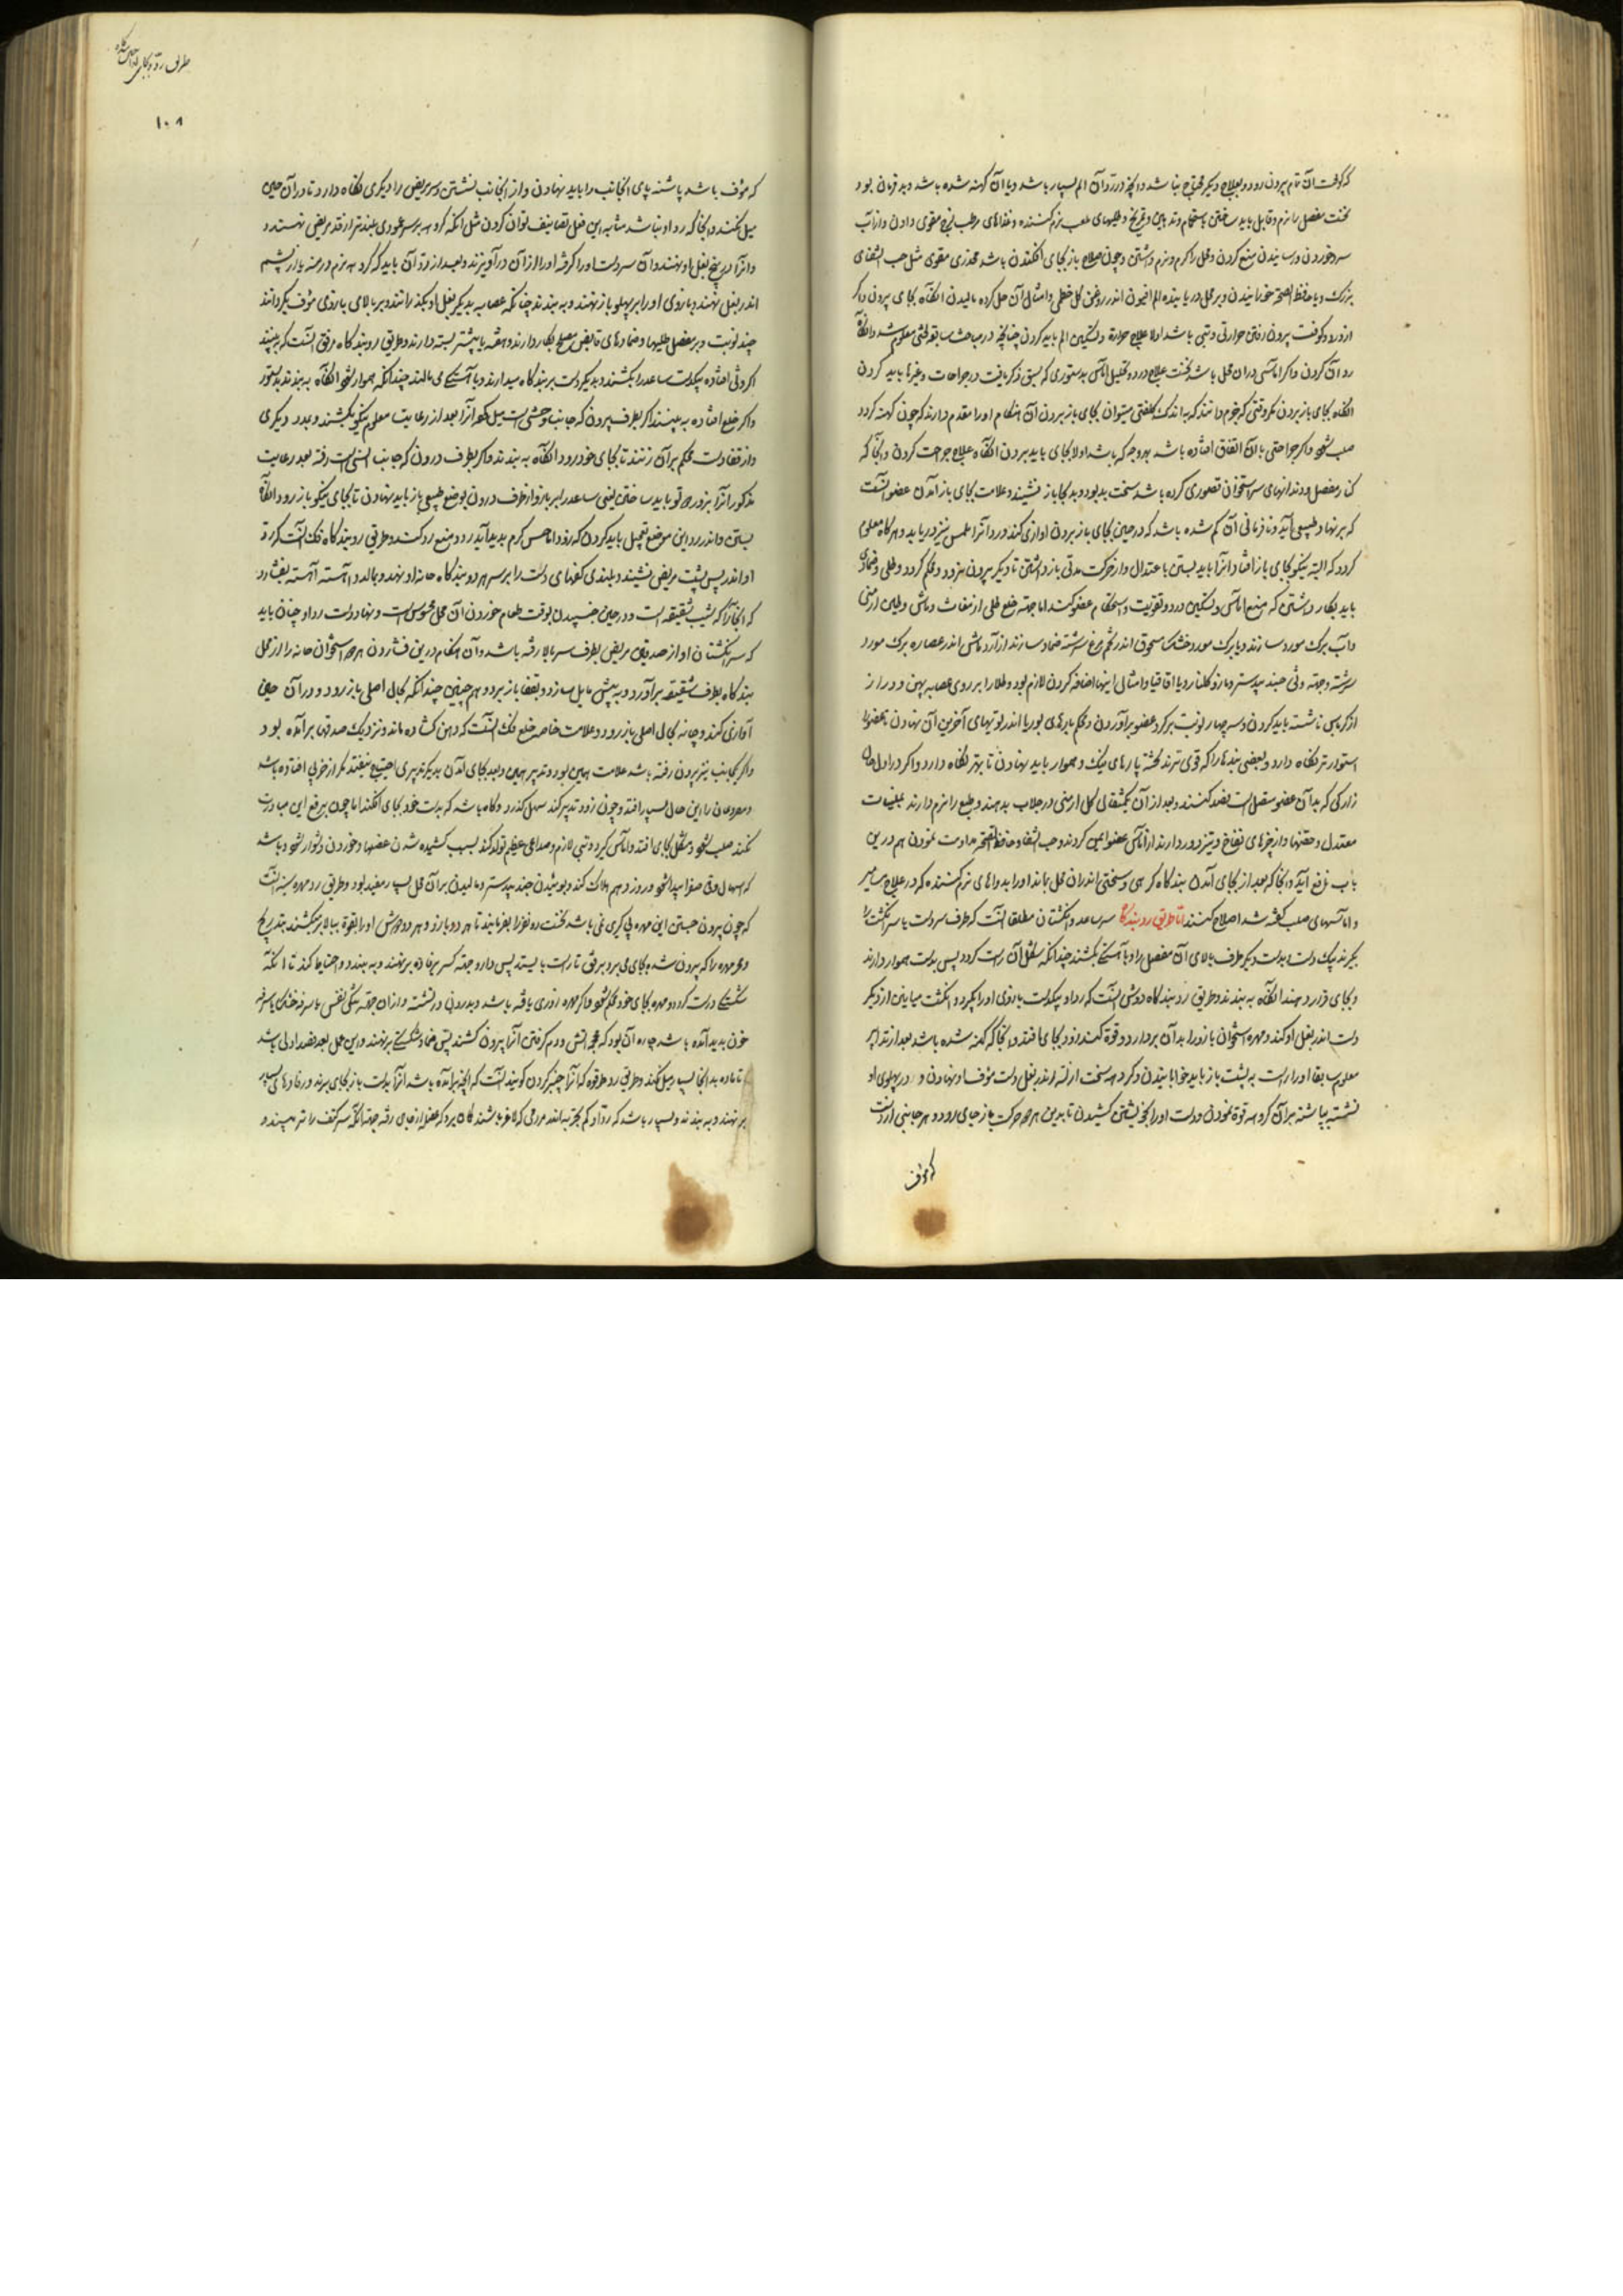 که کوفت آن تمام بیرون رود و بعلاج دیگر محتاج نباشد و آنچه در رد آن الم بسیار باشد و یا آن کهنه شده باشد و بد فرمان بود
نخست مفصل را نرم و قابل باید ساختن باستحمام و تدهین و تمریخ و طلیهای ملعب نرم کننده و غذاهای مرطب مزلج مقوی دادن و از آب
سرد خوردن و رسانیدن منع کردن و محل را کرم و نرم داشتن و چون صلاح باز بجای افکندن باشد مخدری مقوی مثل حب الشفای
بزرک و یا حافظ الصحة خورانیدن و بر محل دریابنده الم افیون اندر روغن کل خطمی و امثال آن حل کرده مالیدن آنکاه بجای بیرون واکر
از درد کوفت بیرون رفتن حرارتی و تبی باشد اولا علاج حرارة و تسکین الم باید کردن چنانچه در مباحث سابقه معلوم شد و آنکاه
رد آن کردن واکر آماسی در آن محل باشد نخست علاج درد و تحلیل آماس بدستوری که سبق ذکر یافت در جراحات و غیرها باید کردن
آنکاه بجای باز بردن مکر وقتی که جزم دانند که باندک کلفتی میتوان بجای باز بردن آن هنکام او را مقدم دارند که چون کهنه کردد
صلب شود واکر جراحتی با آن اتفاق افتاده باشد بهر وجه که باشد اولا بجای باید بردن آنکاه علاج جراحت کردن و آنجا که
کنار مفصل و دندانهای سر استخوان قصوری کرده باشد سخت بد بود و بد بجا باز نشیند و علامت بجای باز آمدن عضو آنست
که بر نهاد طبیعی آید و نافرمانی آن کم شده باشد که در حین بجای باز بردن آوازی کند و در آنرا لمس نیز دریابد و هرکاه معلوم
کردد که البته نیکو بجای باز افتاد آنرا باید بستن باعتدال و از حرکت مدتی باز داشتن تا دیکر بیرون نرود و محکم کردد و طلی و ضمادی
باید بکار داشتن که منع آماس و تسکین درد و تقویت و استحکام عضو کند اما جهة خلع طلی از مغاث و ماش و طین ارمنی
و آب برک مورد سازند و یا برک مورد خشک مسحوق اندر تخم مرغ سرشته ضماد سازند و از آرد ماش اندر عصاره برک مورد
سرشته و جهة وثی جند بیدستر و مازو کلنار و یا اقاقیا و امثال اینها اضافه کردن لازم بود و طلا را بر روی عصابه پهن و دراز
از کرباس ناشسته باید کردن و سه چهار نوبت بر کرد عضو برآوردن و محکم بارهای بوریا اندر لوتهای آخرین آن نهادن تا عضو را
استوارتر نکاه دارد و بعضی بندها را که قوی ترند تخته پارهای نیک و هموار باید نهادن تا بهتر نکاه دارد واکر در اول حال
زار کی که بدآن عضو متصل است فصد کنند و بعد از آن یکمثقال کل ارمنی در جلاب بدهند و طبع را نرم دارند بملینات
معتدل و حقنها و از چیزهای نفاخ و تیز دور دارند از آماس عضو ایمن کردند و حب الشفا و حافظ الصحة مداومت نمودن هم درین
باب نافع آید و آنجا که بعد از بجای آمدن بندکاه کرهی و سختی اندر آن محل بماند او را بدواهای نرم کننده که در علاج سایر
و آماسهای صلب کفته شد اصلاح کنند اما طریق رد بندکاه سر ساعد و انکشتان مطلقا آنست که طرف سر دست یا سر انکشت را
بکیرند بیک دست بدست و دیکر طرف بالای آن مفصل را و با آهستکی بکشند چندانکه سفل آن راست کردد پس بدست هموار دارند
و بجای قرار دهند آنکاه به بندند و طریق رد بندکاه دوش آنست که رداد بیکدست بازوی او را بکیرد و انکشت میانین از دیکر
دست اندر بغل او کند و مهره استخوان بازو را بدآن بردارد و قوة کند زود بجای افتد و آنجا که کهنه شده باشد بعد از تدابیر
معلوم سابقا او را راست به پشت باز باید خوابانیدن و کروهه سخت از لته اندر بغل دست مؤف او نهادن و در پهلوی او
نشسته بپاشنه بر آن کروهه قوة نمودن و دست او را بخویشتن کشیدن تا بدین هر دو حرکت باز جای رود و هر جانبی از دست
که مؤف
۱۰۸
که مؤف باشد پاشنه پای آنجانب را باید نهادن و از آنجانب نشستن و سر مریض را دیکری نکاه دارد تا در آن حین
میل نکند و آنجا که رداد نباشد مشابه این فعل تصانیف توان کردن مثل آنکه کروهه بر سر عمودی بلندتر از قد مریض نهند و
و آنرا در بیخ بغل او نهند و آن سر دست او را کرفته او را از آن درآویزند و بعد از رد آن باید که کروهه نرم و رمند یا از پشم
اندر بغل نهند و بازوی او را بر پهلو باز نهند و به بندند چنانکه عصابه بدیکر بغل او بکذرانند و بر بالای بازوی مؤف بکردانند
چند نوبت و بر مفصل طلیها و ضمادهای قابض مصلح بکار دارند و هفته یا بیشتر بسته دارند و طریق رد بندکاه مرفق آنست که ببینند
اکر وثی افتاده بیکدست ساعد را بکشند و بدیکر دست بر بندکاه میدارند و با آهستکی می مالند چندانکه هموار شود آنکاه به بندند بدستور
واکر خلع افتاده به بینند اکر بطرف بیرون که جانب وحشی است میل کرده آنرا بعد از رعایت معلوم نیکو بکشند و بمدد دیکری
و از قفا دست محکم بر آن زنند تا بجای خود رود و آنکاه به بندند واکر بطرف درون که جانب انسی است رفته بعد رعایت
مذکور آنرا بزور دو تو باید ساختن یعنی ساعد را بر بازو از طرف درون بوضع طبیعی باز باید نهادن تا بجای نیکو باز رود و آنکاه
بستن و اندر رد این موضع تعجیل باید کردن که زود آماس کرم بدید آید و منع رد کند و طریق رد بندکاه فک آنست که رداد
او اندر پس پشت مریض نشیند و بلندی کفهای دست را بر سر هر دو بندکاه چانه او نهد و بمالد و آهسته آهسته بفشارد
که آنجا را که شیب شقیقه است و در حین جنبیدن بوقت طعام خوردن آن محل محسوس است و نهاد دست رداد چنان باید
که سر انکشتان او از صدغین مریض بطرف سر بالا رفته باشد و آن هنکام درین فشاردن هر دو استخوان چانه را از محل
بندکاه بطرف شقیقه برآورد و به پیش مایل سازد و بقفا باز برد و هم چنین چندانکه بحال اصلی باز رود و در آن حین
آوازی کند و چانه بحال اصلی باز رود و علامت خاصه خلع فک آنست که دهن کشاده ماند و نزدیک صدغها برآمده بود
واکر یکجانب نیز بیرون رفته باشد علامت همین بود و تدبیر همین و بعد بجای آمدن بدیکر تدبیری احتیاج نیفتد مکر از ضربی افتاده باشد
و مصروعان را این حال بسیار افتد و چون زود تدبیر کنند سهل کذرد و کاه باشد که بدست خود بجای افکند اما چون برفع این مبادرت
نکنند صلب شود و مشکل بجای افتد و آماس کیرد و تبی لازم و صداعی عظیم تولد کند بسبب کشیده شدن عضلها و خوردن دشوار شود و باشد
که اسهال وقی صفرا پیدا شود و روز دهم هلاک کند و بوئیدن جند بیدستر و مالیدن بر آن محل بسیار مفید بود و طریق رد مهره سینه آنست
که چون بیرون جستن این مهره بی کری نمی باشد نخست دو نفر را بفرمایند تا هر دو بازو و هر دو دوش او را بقوة ببالا بر میکشند بتدریج
و مهره را که بیرون شده بجای می برد برفق تا راست بایستد پس دارو جهة کسر بر رفاده بر نهند و به بندد و احتیاط کند تا آنکه
شکستکی درست کردد و مهره بجای خود محکم شود واکر مهره زوری یافته باشد و بدرون در نشسته و از آن جهة تنکی نفس یا سرفه خشک یا سرفه
خون بدید آمده باشد چاره آن بود که محجمه آتش و دم کرفتن آنرا بیرون کشند پس ضماد شکستکی بر نهند و درین محل بعد فصد اولی باشد
تا ماده بدآنجا بسیار میل نکند و طریق رد ترقوه که آنرا چنبر کردن کویند آنست که آنچه برآمده باشد آنرا بدست باز بجای برند و رفادهای بسیار
بر نهند و به بندند و بسیار باشد که رداد کم تجربه اندر مردمی که لاغر باشند کمان برد که عضو از جای رفته جهة آنکه سر کتف را تیز بیند و